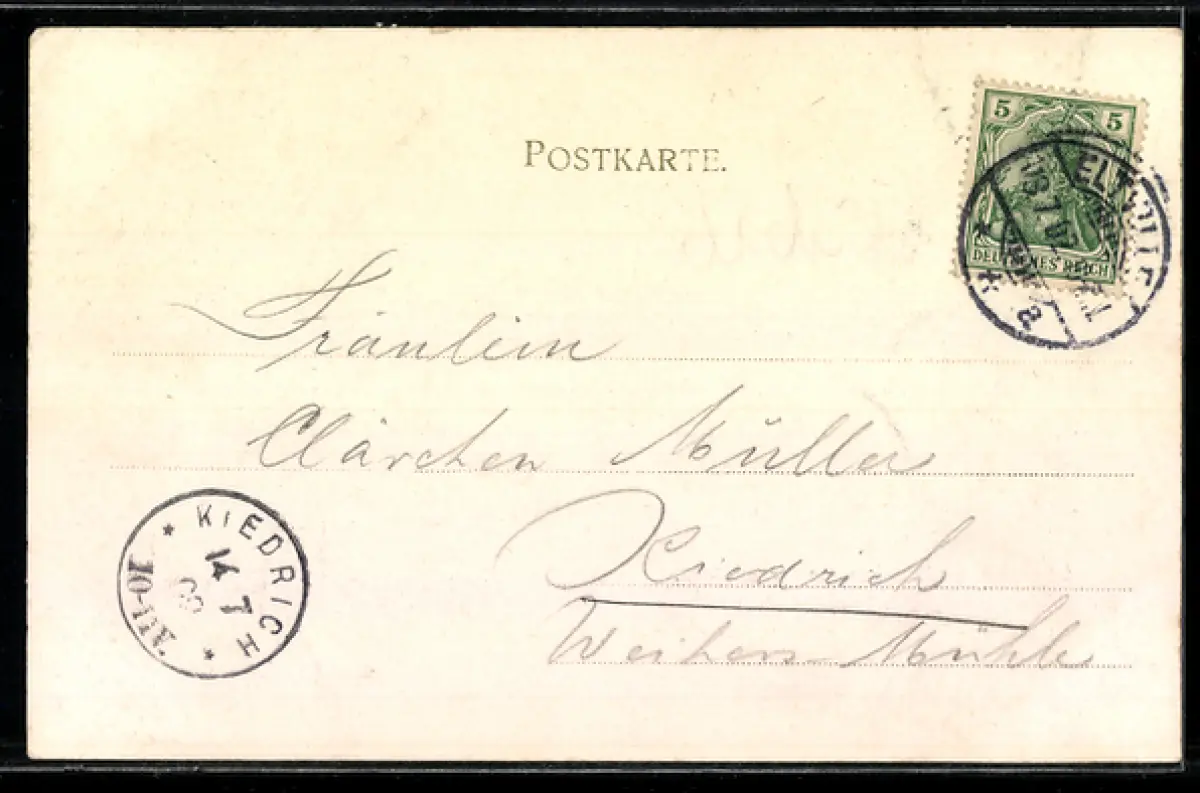 POSTKARTE.
5 5
DEUTSCHES REICH
ELTVILLE
* * a
Fräulein
Clärchen Müller
Kiedrich
Weihers-Mühle
* KIEDRICH *
14 7
10-11V.